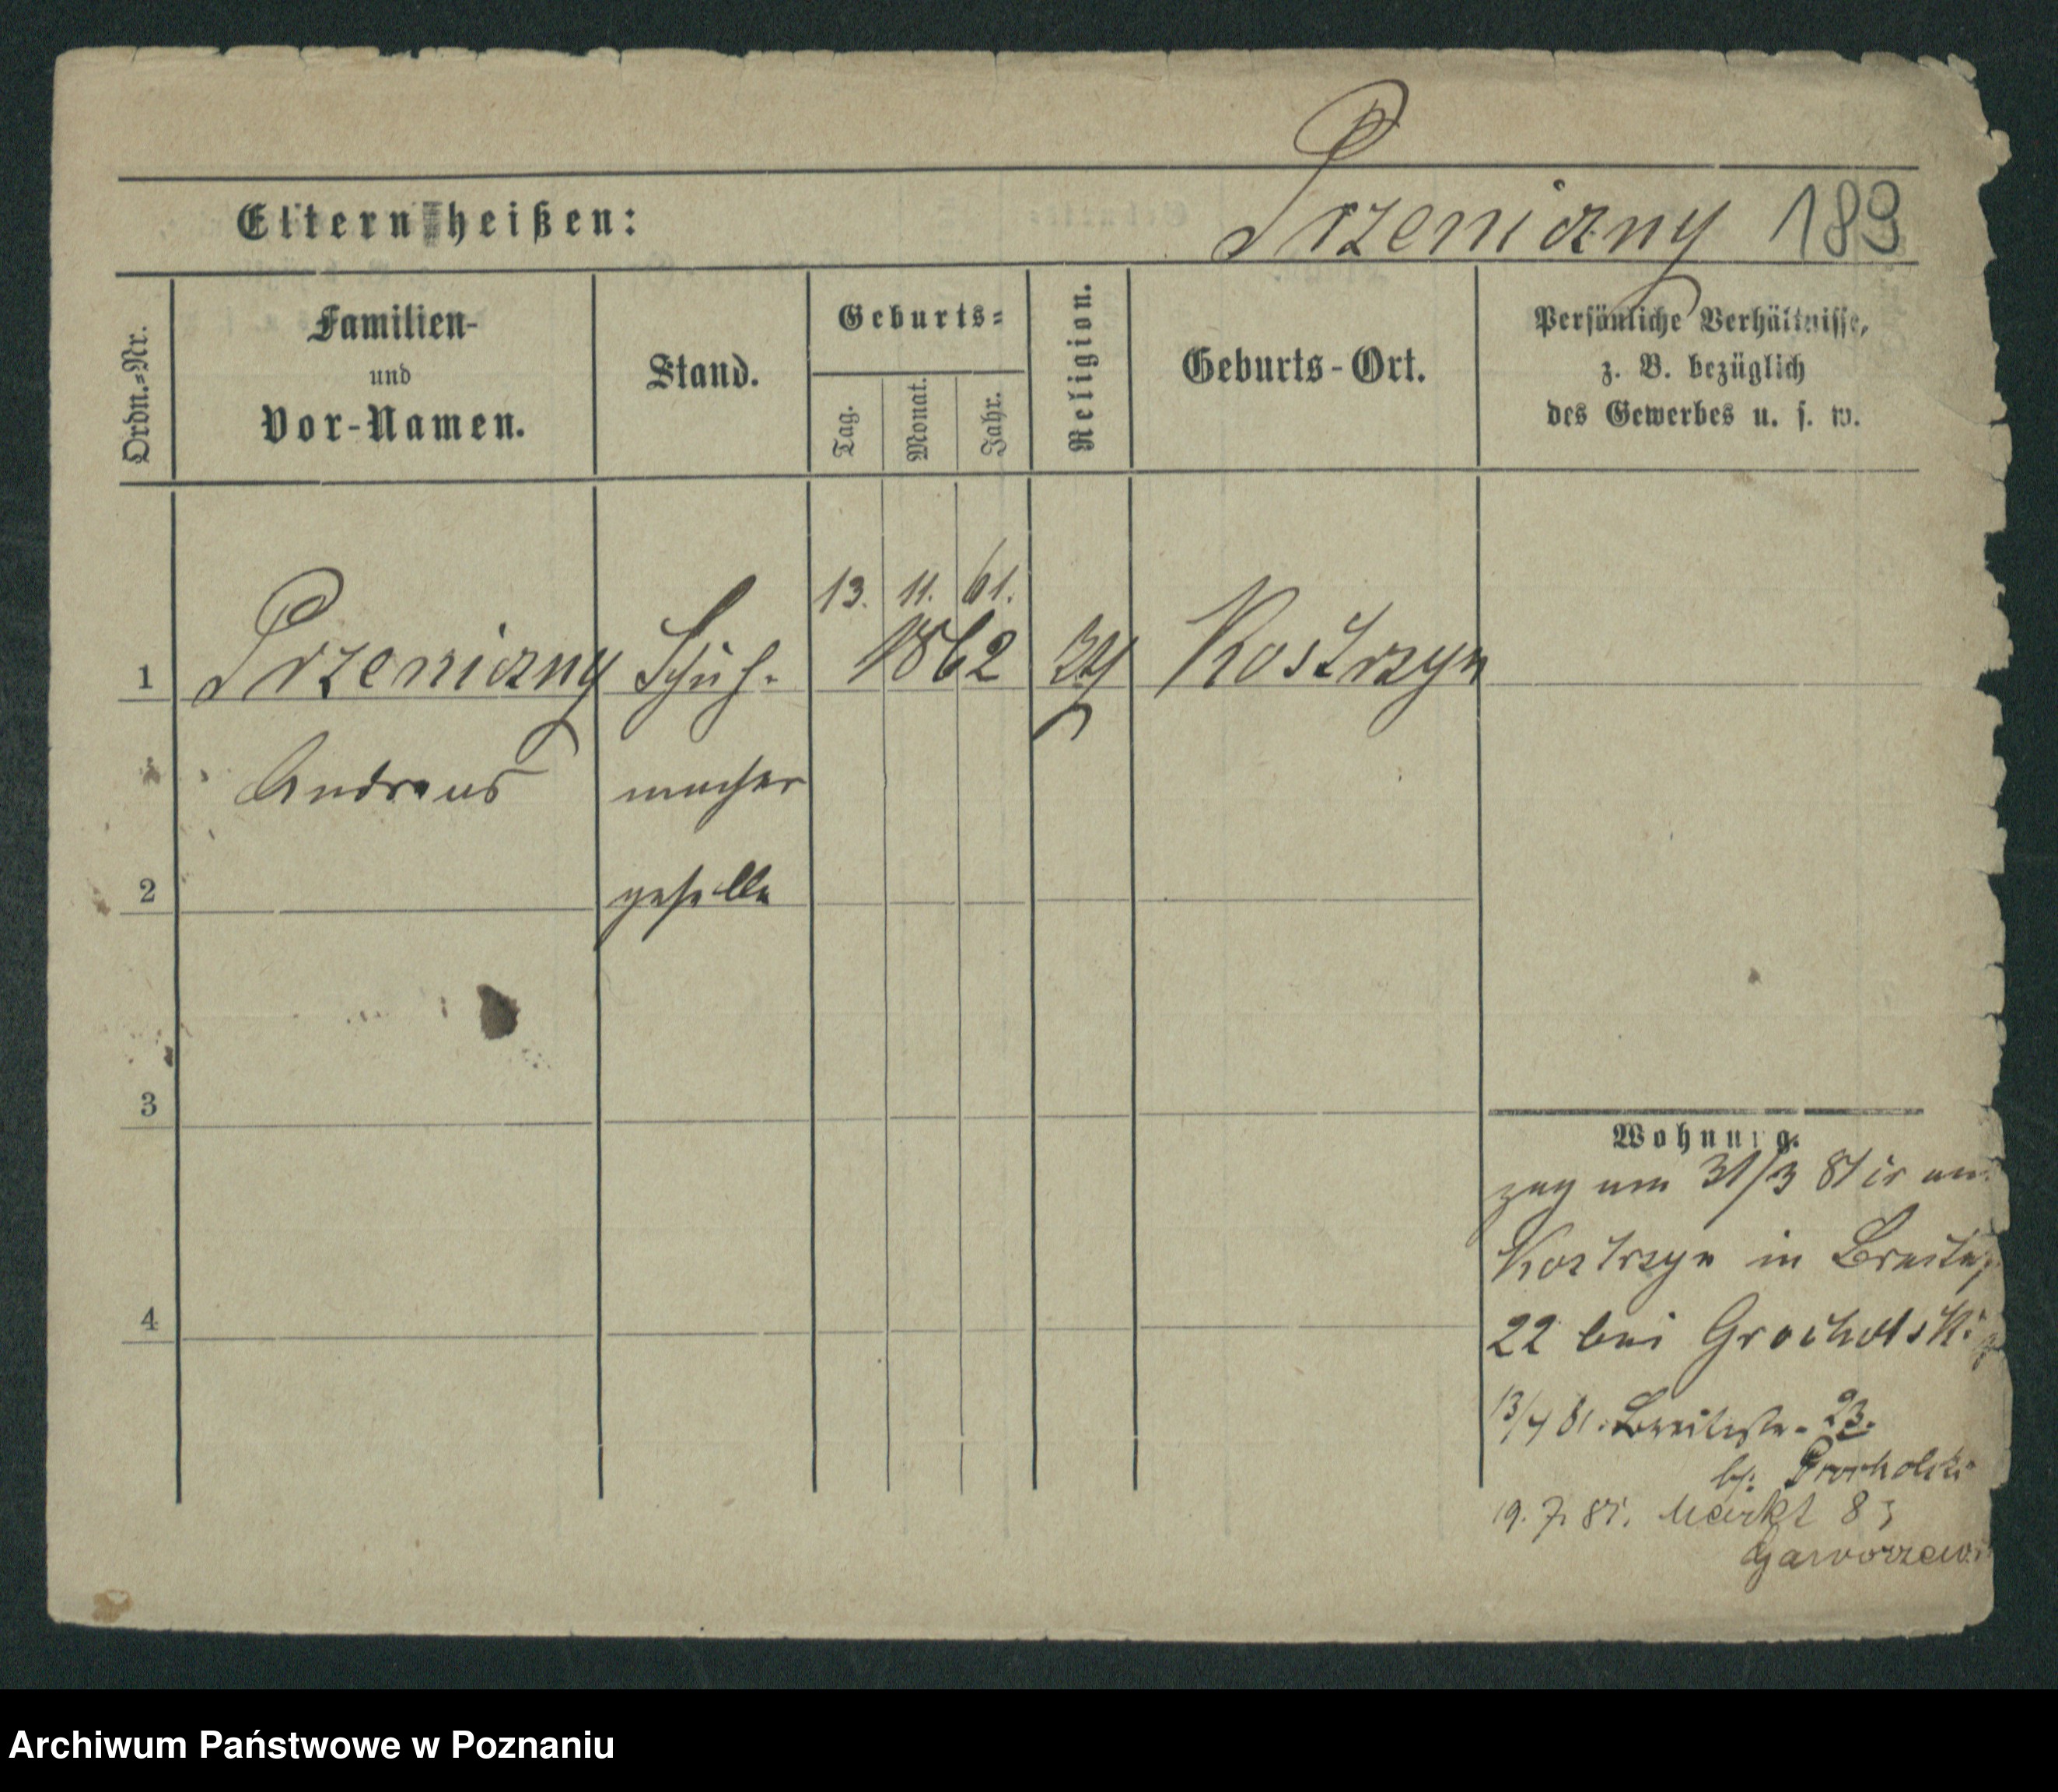 Przeniczny 189
Eltern heißen:
Ordn.-Nr.
Familien-
und
Vor-Namen.
Stand.
Geburts-
Tag.
Monat.
Jahr.
Religion.
Geburts-Ort.
Persönliche Verhältnisse,
z. B. bezüglich
des Gewerbes u. s. w.
13. 11. 61.
1 Przeniczny Schuh- 1862 Kostrzyn
Andreas macher
2 geselle
3
Wohnung.
zog am 31/3 81 in aus
Kostrzyn in Breite
4
22 bei Grocholski
13/4 81. Breitestr. 23.
bei Grocholski
19. 7. 81. Markt 83
Gaworzews
Archiwum Państwowe w Poznaniu